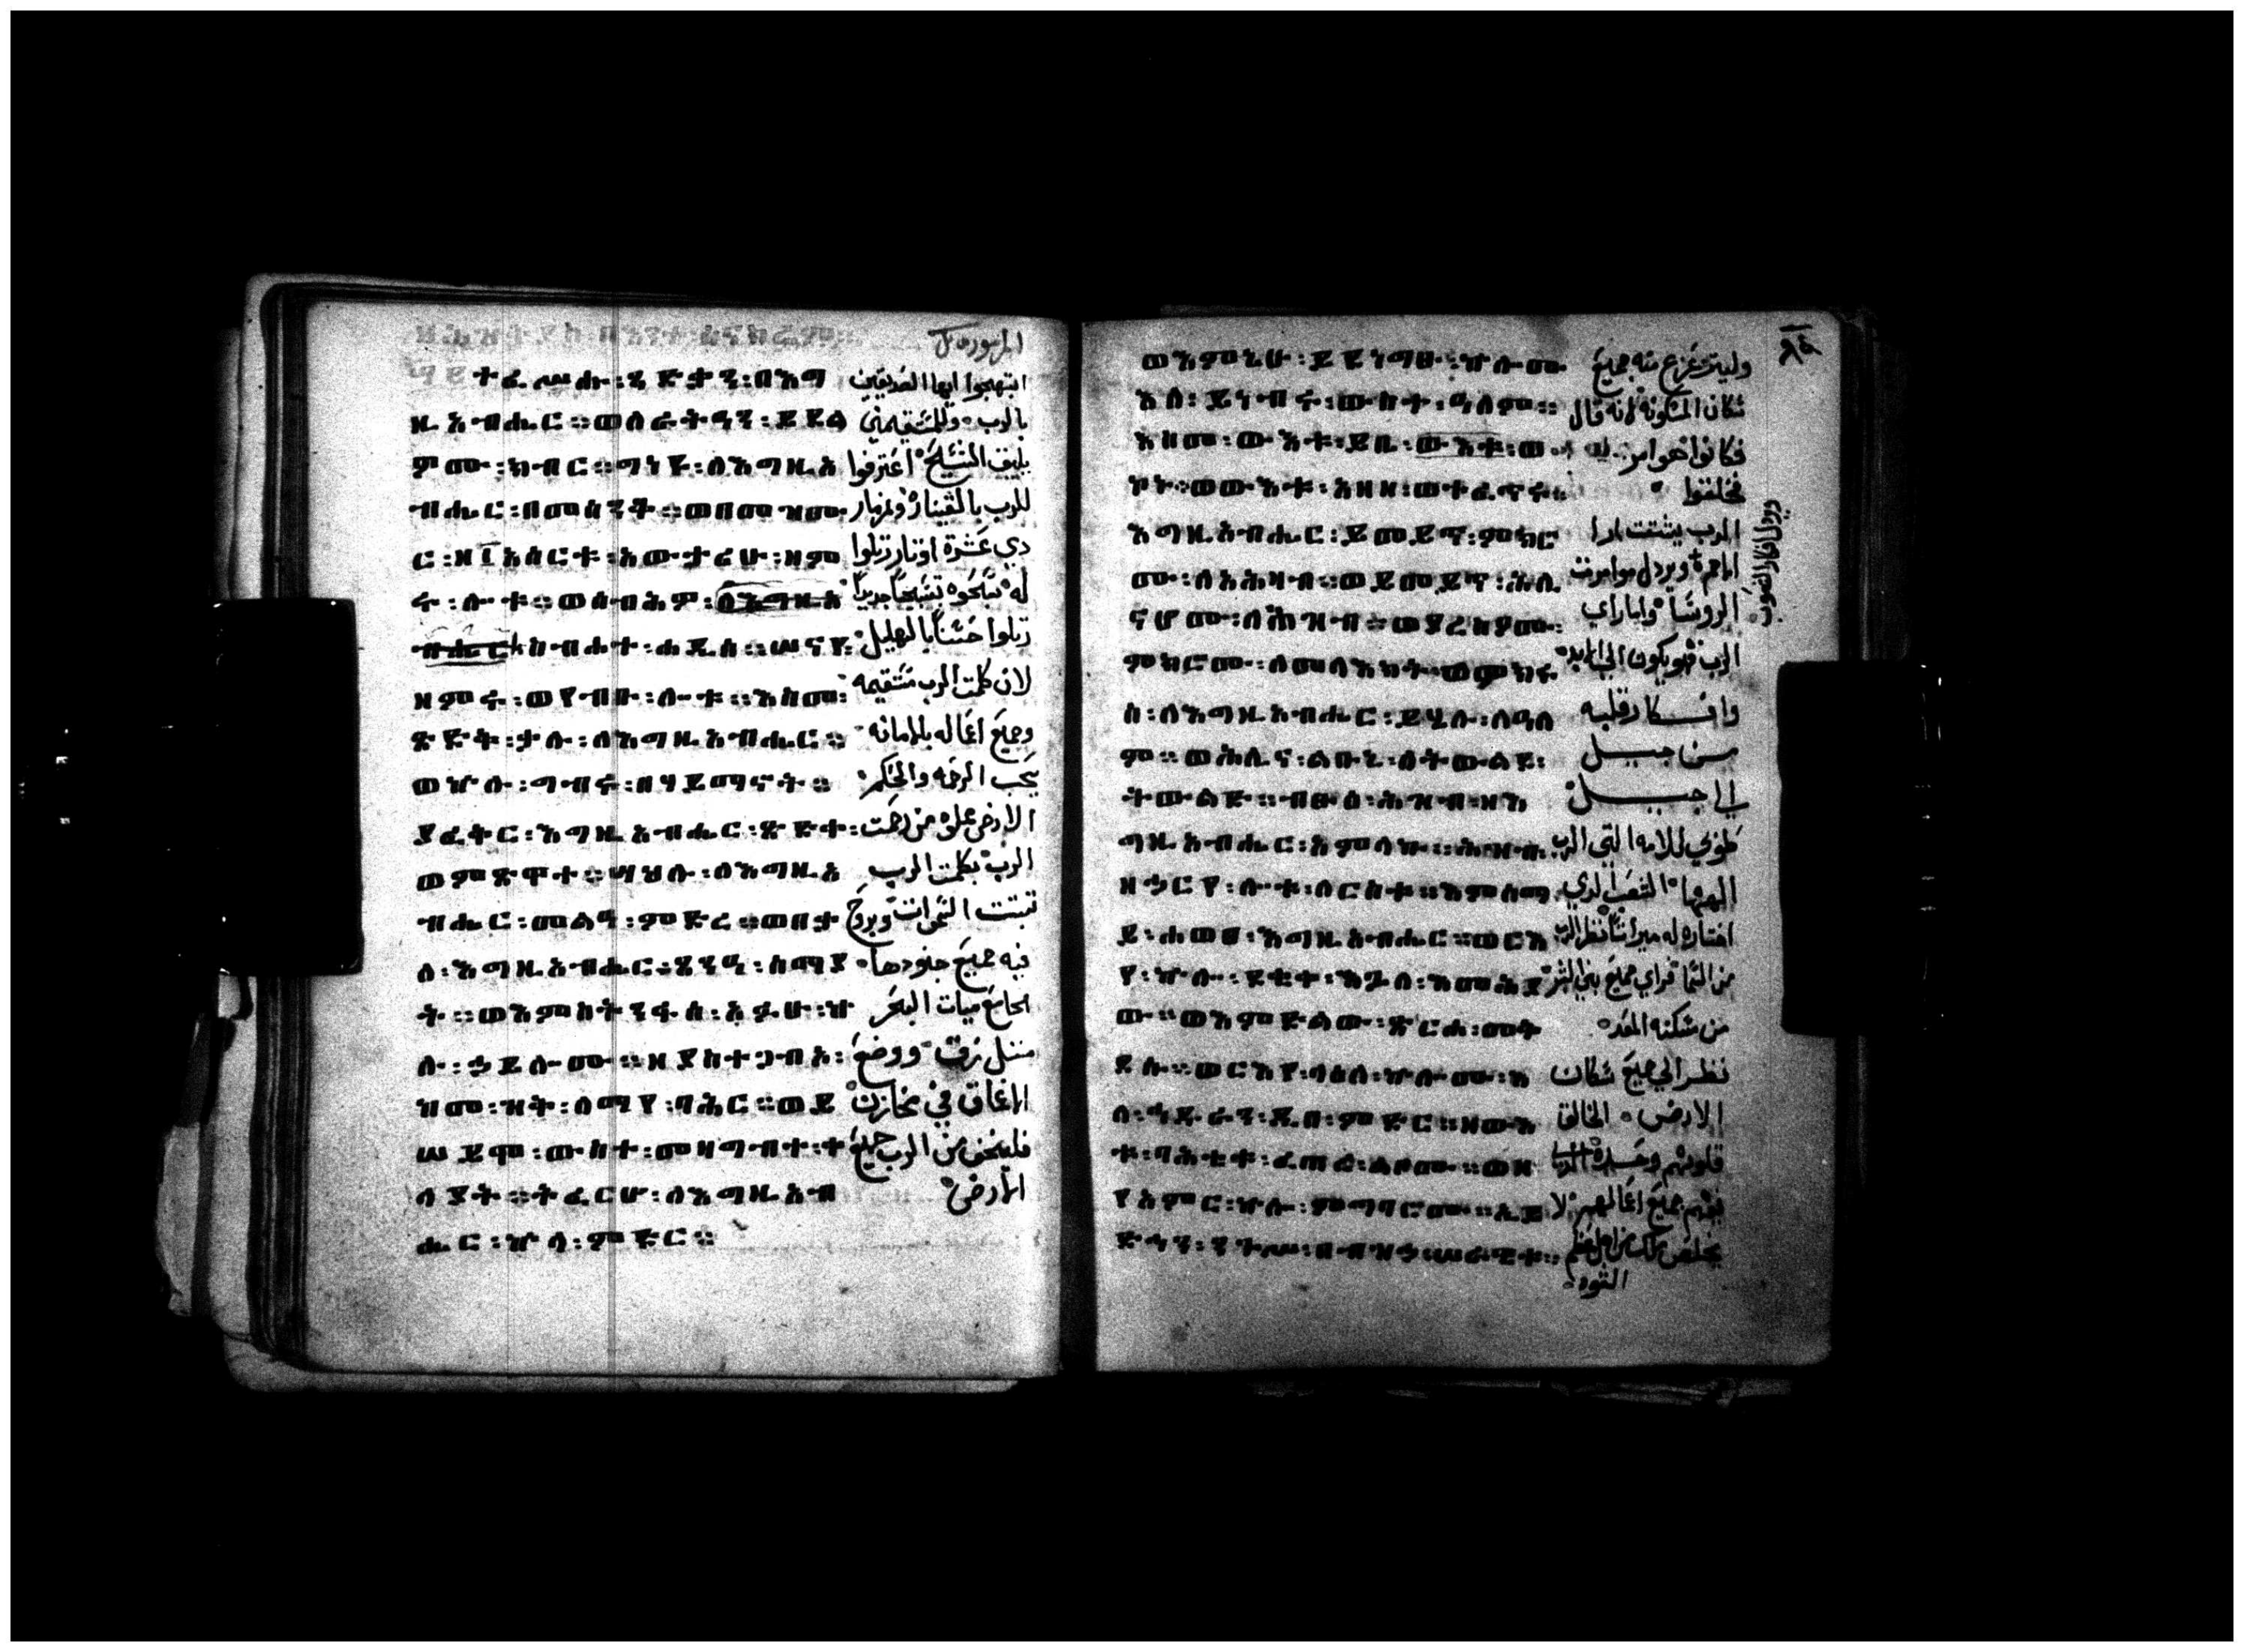 ተፈሥሑ፡ጻድቃን፡በእግ
ዚአብሔር።ወለራትዓን፡ይደሉ
ዎሙ፡ክብር።ግነዩ፡ለእግዚአ
ብሔር፡በመሰንቆ።ወበመዝሙ
ር፡ዘ፲አስርቱ፡አውታሪሁ፡ዘም
ሩ፡ሎቱ።ወሰብሕዎ፡ለእግዚአ
ብሔር ስብሐተ፡ሐዲስ።ሠናየ፡
ዘምሩ፡ወየብቡ፡ሎቱ።እስመ፡
ጽድቅ፡ቃሉ፡ለእግዚአብሔር።
ወኵሉ፡ግብሩ፡በሃይማኖት።
ያፈቅር፡እግዚአብሔር፡ጽድቀ፡
ወምጽዋተ።ሣህሉ፡ለእግዚአ
ብሔር፡መልዓ፡ምድረ።ወበቃ
ለ፡እግዚአብሔር፡ጸንዓ፡ሰማያ
ት።ወእምስትንፋሰ፡አፉሁ፡ኵ
ሉ፡ኃይሎሙ።ዘያስተጋብእ፡
ከመ፡ዝቅ፡ለማየ፡ባሕር።ወይ
ሠይሞ፡ውስተ፡መዛግብተ፡ቀ
ላያት።ትፈርሆ፡ለእግዚአብ
ሔር፡ኵላ፡ምድር።
ابتهجوا ايها الصديقين
بالرب وللمستقيمين
يليق التسبيح اعترفوا
للرب بالقيثاره وبمزمار
دي عشرة اوتار رتلوا
له سبحوه تسبيحا جديدا
رتلوا حسنا بالتهليل
لان كلمت الرب مستقيمه
وجميع اعماله بالامانه
يحب الرحمه والحكم
الارض مملوه من رحمت
الرب بكلمت الرب
تبتت السموات وبروح
فيه جميع جنودها
الجامع ميات البحر
متل زق ووضع
الاعماق في مخازن
فليخف من الرب جميع
الارض
ወእምኔሁ፡ይደነግፁ፡ኵሎሙ
እለ፡ይነብሩ፡ውስተ፡ዓለም።
እስመ፡ውእቱ፡ይቤ፡ውእቱ፡ወኮ
ኑ።ወውእቱ፡አዘዘ፡ወተፈጥሩ።
እግዚአብሔር፡ይመይጥ፡ምክሮ
ሙ፡ለአሕዛብ።ወይመይጥ፡ሕሊ
ናሆሙ፡ለሕዝብ።ወያረስዖሙ፡
ምክሮሙ፡ለመላእክት።ወምክሩ
ሰ፡ለእግዚአብሔር፡ይሄሉ፡ለዓለ
ም።ወሕሊና፡ልቡኒ፡ለትውልደ፡
ትውልድ።ብፁዕ፡ሕዝብ፡ዘእ
ግዚአብሔር፡አምላኩ።ሕዝብ
ዘኃርየ፡ሎቱ፡ለርስቱ።እምሰማ
ይ፡ሐወጸ፡እግዚአብሔር።ወርእ
የ፡ኵሎ፡ደቂቀ፡እጓለ፡እመሕያ
ው።ወእምድልው፡ጽርሐ፡መቅ
ደሱ።ወርእየ፡ላዕለ፡ኵሎሙ፡እ
ለ፡ኅዱራን፡ዲበ፡ምድር።ዘውእ
ቱ፡ባሕቲቱ፡ፈጠረ፡ልቦሙ።ወዘ
የአምር፡ኵሎ፡ምግባሮሙ።ኢይ
ድኅን፡ንጉሥ፡በብዝኃ፡ሠራዊቱ።
منه جميع
سكان المسكونه لانه قال
فكانوا هو امر
فخلقوا
الرب يشتت ارا
الروسا واما راي
الرب فهو يكون الي الابد
وافكار قلبه
من جيل
الي جيل
طوبي للامه التي الرب
الهها الشعب الدي
اختاره له ميراثا نظر الرب
من السما فراي جميع بني البشر
من مسكنه المعد
نظر الي جميع سكان
الارض الخالق
قلوبهم وحده
يفهم جميع اعمالهم لا
يخلص ملك من اجل عظم
القوه